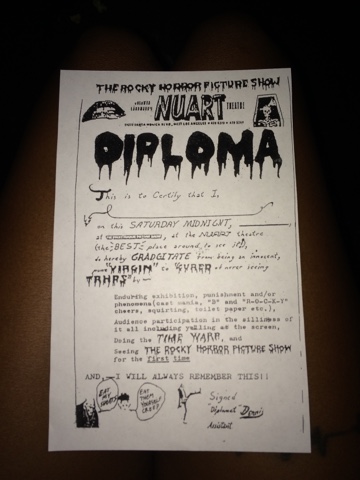 THE ROCKY HORROR PICTURE SHOW
LANDMARK'S NUART THEATRE
DIPLOMA
This is to Certify that I,
on this SATURDAY MIDNIGHT,
at the NUART theatre
(the BEST place around to see it!),
do hereby GRADGITATE from being an innocent,
"VIRGIN" to "CURED" of never seeing
TRHPS by—
Enduring exhibition, punishment and/or
phenomena(cast mania, "B" and "R-O-C-K-Y"
cheers, squirting, toilet paper etc.),
Audience participation in the silliness of
it all including yelling at the screen,
Doing the TIME WARP, and
Seeing THE ROCKY HORROR PICTURE SHOW
for the first time
AND - I WILL ALWAYS REMEMBER THIS!!
EAT MY
EAT THEM YOURSELF
Signed
"Diplomat" Dennis
Assistant